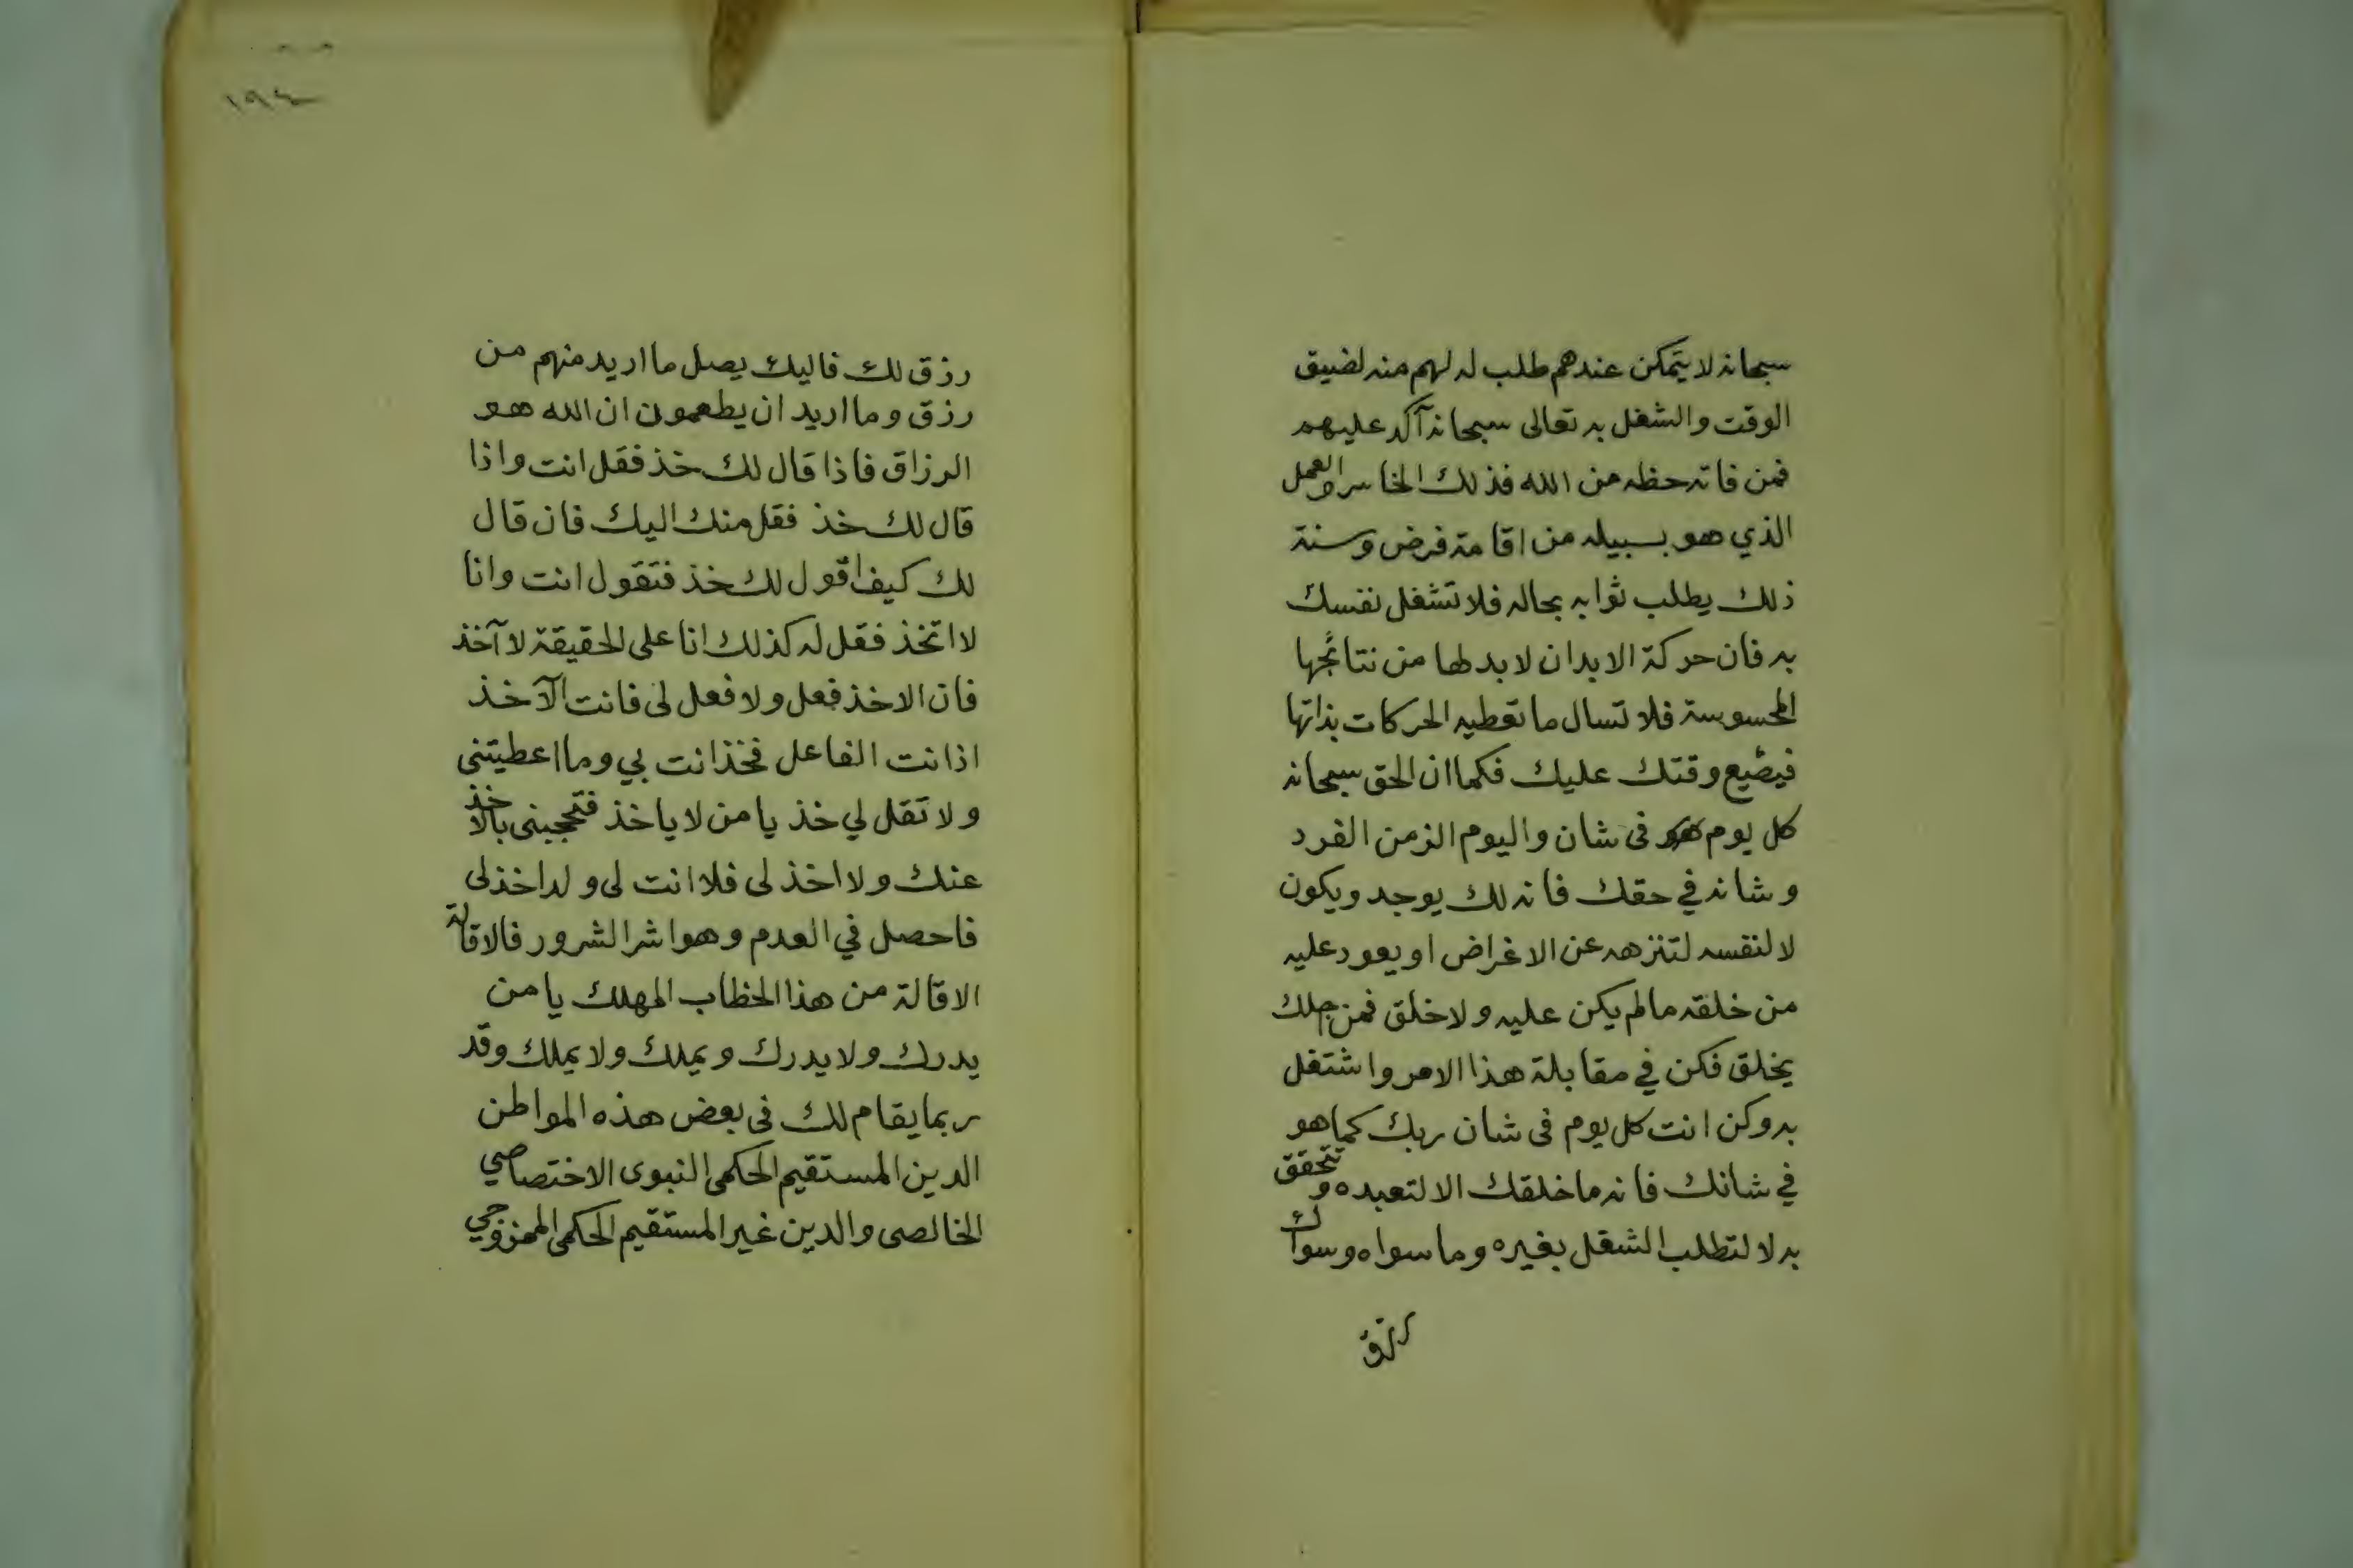 سبحانه لا يتمكن عندهم طلب له لهم منه لضيق
الوقت والشغل به تعالى سبحانه آكد عليهم
فمن فاته حظه من الله فذلك الخاسر والعمل
الذي هو بسبيله من اقامة فرض وسنة
ذلك يطلب ثوابه بحاله فلا تشغل نفسك
به فان حركة الابدان لا بد لها من نتائجها
المحسوسة فلا تسال ما تعطيه الحركات بذاتها
فيضيع وقتك عليك فكما ان الحق سبحانه
كل يوم هو فى شان واليوم الزمن الفرد
وشانه في حقك فانه لك يوجد ويكون
لا لنفسه لتنزهه عن الاغراض او يعود عليه
من خلقه ما لم يكن عليه ولا خلق فمن اجلك
يخلق فكن في مقابلة هذا الامر واشتغل
به وكن انت كل يوم فى شان ربك كما هو
في شانك فانه ما خلقك الا لتعبده وتتحقق
به لا لتطلب الشغل بغيره وما سواه وسواك
رزق
١٩٤
رزق لك فاليك يصل ما اريد منهم من
رزق وما اريد ان يطعمون ان الله هو
الرزاق فاذا قال لك خذ فقل انت واذا
قال لك خذ فقل منك اليك فان قال
لك كيف اقول لك خذ فتقول انت وانا
لا اتخذ فقل له كذلك انا على الحقيقة لا آخذ
فان الاخذ فعل ولا فعل لى فانت الآخذ
اذ انت الفاعل فخذ انت بي وما اعطيتنى
ولا تقل لي خذ يا من لا ياخذ فتحجبنى بالاخذ
عنك ولا اخذ لى فلا انت لى ولا اخذ لى
فاحصل في العدم وهو اشر الشرور فالاقالة
الاقالة من هذا الخطاب المهلك يا من
يدرك ولا يدرك ويملك ولا يملك وقد
ربما يقام لك فى بعض هذه المواطن
الدين المستقيم الحكمى النبوى الاختصاصي
الخالصى والدين غير المستقيم الحكمى الممزوجي